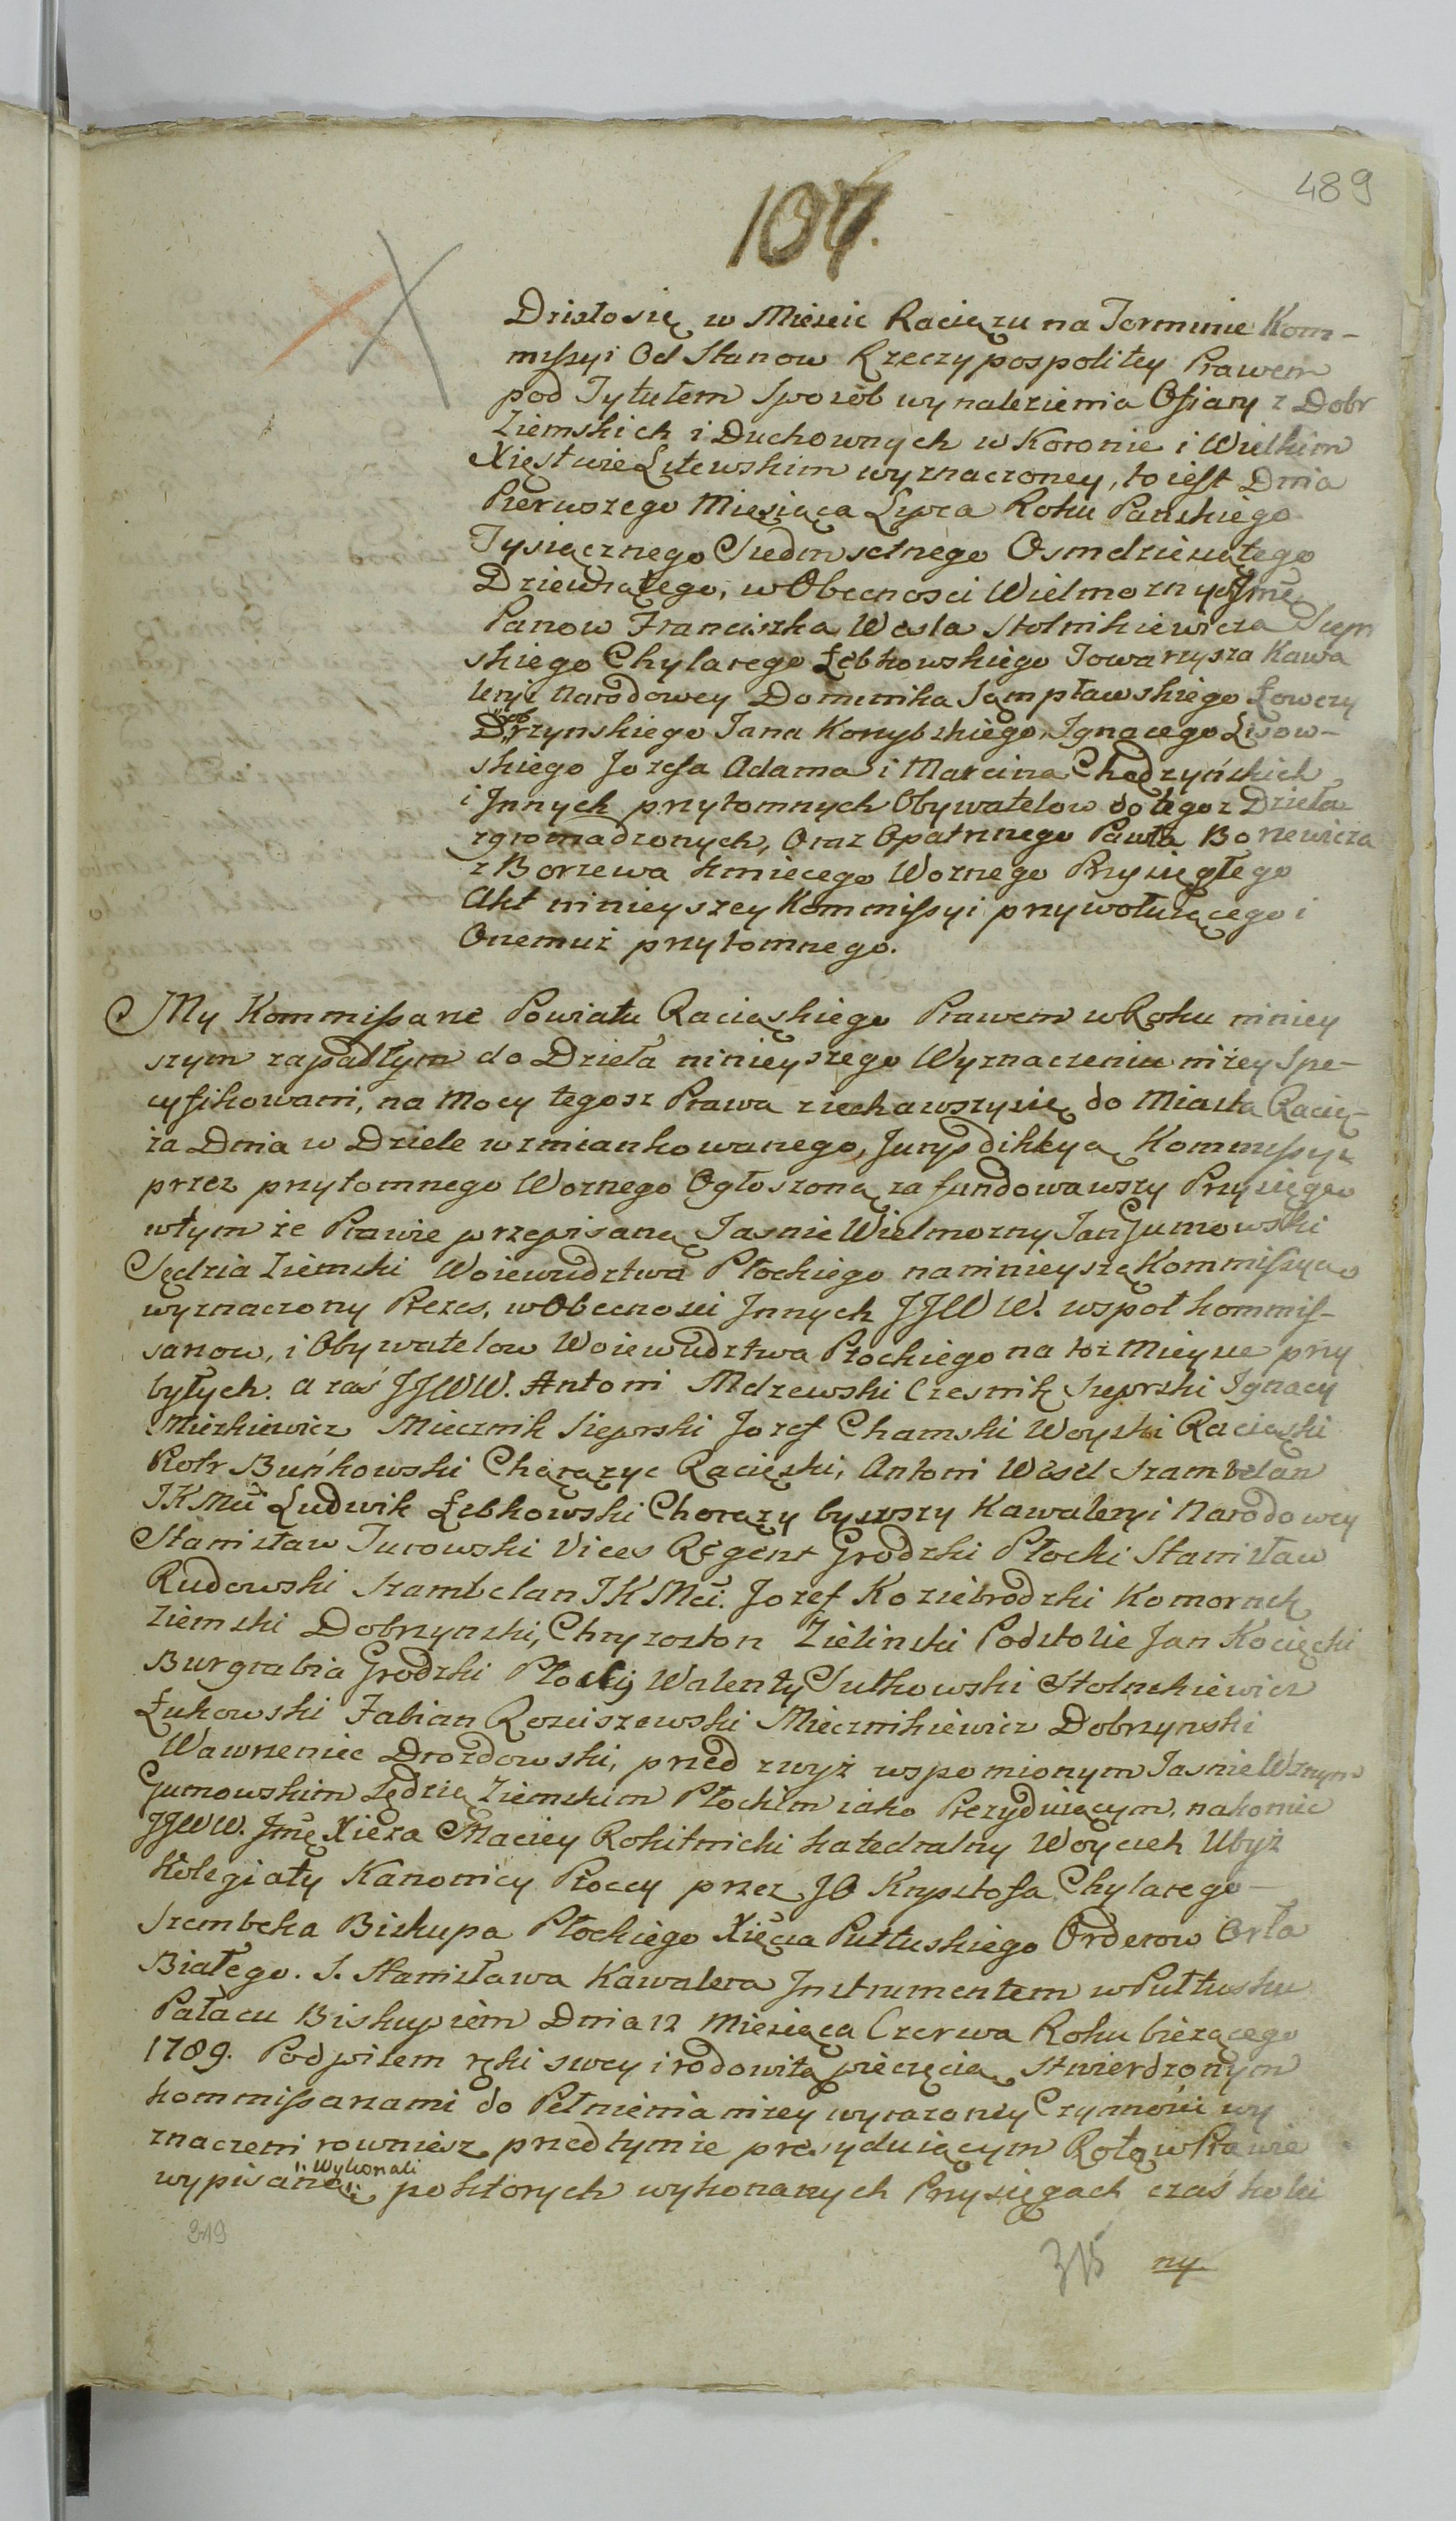 489
104.
Działo się w Mieście Raciążu na Terminie Kom-
mißyi Od Stanow Rzeczypospolitey Prawem
pod Tytułem Sposób wynalezienia Ofiary z Dobr
Ziemskich i Duchownych w Koronie i Wielkim
Xięstwie Litewskim wyznaczoney, to iest Dnia
Pierwszego Miesiąca Lipca Roku Pańskiego
Tysiącznego Siedmsetnego Osmdziesiątego
Dziewiątego, w Obecnosci Wielmoznych Jmć
Panow Franciszka Wesla Stolnikiewicza Sierp
skiego Chylarego Łebkowskiego Towarzysza Kawa
leryi Narodowey Dominika Sampławskiego Łowczy
Dobrzynskiego Jana Konybskiego, Ignacego Lisow-
skiego Jozefa Adama i Marcina Chądzyńskich
i Jnnych przytomnych Obywatelow do tegoz Dzieła
zgromadzonych, Oraz Opatrznego Pawła Borzewicza
z Borzewa kmiecego Woznego Przysięgłego
Akt ninieyszey Kommißyi przywołuiącego i
Onemuż przytomnego.
My Kommißarze Powiatu Raciąskiego Prawem w Roku niniey
szym zapadłym do Dzieła ninieyszego Wyznaczeniu niżey Spe-
cyfikowani, na Mocy tegosz Prawa ziechawszysię do Miasta Racią-
ża Dnia w Dziele wzmiankowanego, Juryzdikcyą Kommißyi
przez przytomnego Woznego Ogłoszoną zafundowawszy Przysięgę
wtym że Prawie przepisaną Jasnie Wielmozny Jan Gumowski
Sędzia Ziemski Woiewudztwa Płockiego na ninieyszą Kommißyą
wyznaczony Prezes, w Obecnosci Jnnych JJWW. wspoł kommis-
sarzow, i Obywatelow Woiewudztwa Płockiego na toz Mieysce przy
byłych. a zaś JJWW. Antoni Mdzewski Czesnik Sierpski Ignacy
Mierkiewicz Miecznik Sierpski Jozef Chamski Woyski Raciąski
Piotr Buńkowski Chorążyc Raciąski, Antoni Wesel Szambelan
JKMci Ludwik Łebkowski Chorąży bywszy Kawaleryi Narodowey
Stanisław Turowski Vices Regent Grodzki Płocki Stanisław
Rudowski Szambelan JKMci. Jozef Koziebrodzki Komornik
Ziemski Dobrzynski, Chryzoston Zielinski Podstolic Jan Kocięcki
Burgrabia Grodzki Płocki, Walenty Sutkowski Stolnikiewicz
Łukowski Fabian Rosciszewski Miecznikiewicz Dobrzynski
Wawrzeniec Drozdowski, przed zwyż wspomionym Jasnie Wznym
Gumowskim Sędzią Ziemskim Płockim iako Prezyduiącym, nakoniec
JJWW. Jmć Xieza Maciey Rokitnicki katedralny Woyciech Ubyż
Kolegiaty Kanonicy Płoccy przez JO Krzysztofa Chylarego
Szembeka Biskupa Płockiego Xięcia Pułtuskiego Orderow Orła
Białego. S. Stanisława Kawalera Jnstrumentem w Pułtusku
Pałacu Biskupiem Dnia 12 Miesiąca Czerwa Roku bieżącego
1789. Podpisem ręki swey i rodowitą pieczęcią stwierdzonym
kommißarzami do Pełnienia nizey wyrazoney Czynności wy
znaczeni rowniesz przed tymże prezyduiącym Rotą w Prawie
wypisaną :: Wykonali :: po ktorych wykonanych Przysięgach czas kolei
219
315 ny.